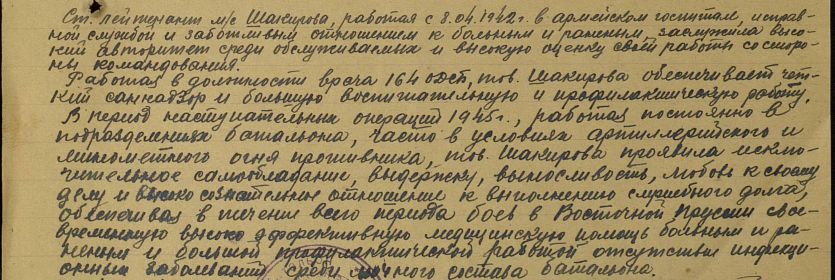 Ст. лейтенант м/с Шакирова, работая с 8.04.1942г. в армейском госпитале, исправ-
ной службой и заботливым отношением к больным и раненым, заслужила высо-
кий авторитет среди обслуживаемых и высокую оценку своей работы со сторо-
ны командования.
Работая в должности врача 164 , тов. Шакирова обеспечивает чет-
кий саннадзор и большую воспитательную и профилактическую работу.
В период наступательных операций 1945г., работая постоянно в
подразделениях батальона, часто в условиях артиллерийского и
минометного огня противника, тов. Шакирова проявила исклю-
чительное самообладание, выдержку, выносливость, любовь к своему
делу и высоко сознательное отношение к выполнению служебного долга,
обеспечивая в течении всего периода боев в Восточной Пруссии свое-
временную высоко эффективную медицинскую помощь больным и ра-
неным и большой профилактической работой отсутствие инфекци-
онных заболеваний среди личного состава батальона.